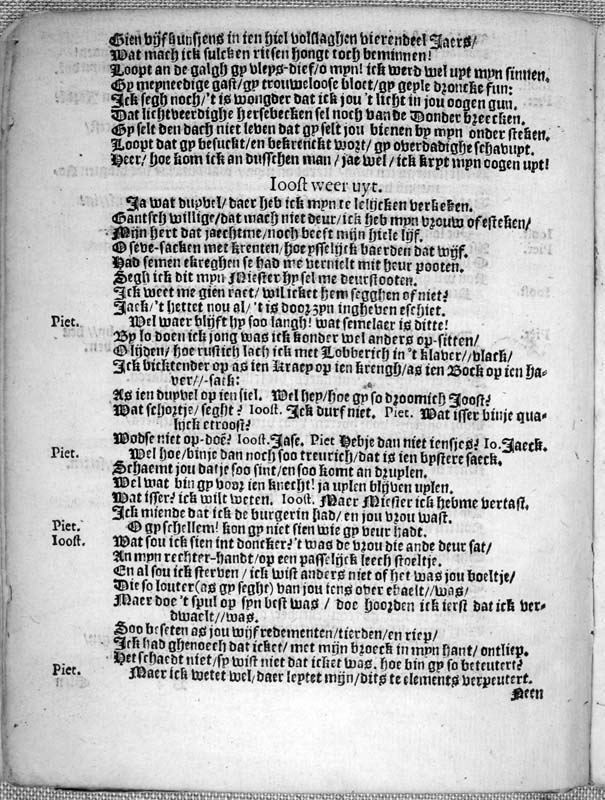 Gien vijf kunsjens in ien hiel volslaghen vierendeel Jaers/
Wat mach ick sulcken ritsen hongt toch beminnen!
Loopt an de galgh gy vleys-dief/o myn! ick werd wel uyt myn sinnen.
Gy meyneedige gast/gy trouweloose bloet/gy geyle droncke fun:
Ick segh noch/'t is wongder dat ick jou 't licht in jou oogen gun.
Dat lichtveerdighe hersebecken sel noch van de Donder breecken.
Gy selt den dach niet leven dat gy selt jou bienen by myn onder steken.
Loopt dat gy besuckt/en bekrenckt wort/ gy overdadighe schavuyt.
Heer/ hoe kom ick an dusschen man/ jae wel/ick kryt myn oogen uyt!
Ioost weer uyt.
Ja wat duyvel/ daer heb ick myn te lelijcken verkeken.
Gantsch willige/dat mach niet deur/ick heb myn vrouw of esteken/
Mijn hert dat jaechtme/noch beeft mijn hiele lijf.
O seve-sacken met krenten/hoe ysselijck baerden dat wijf.
Had semen ekreghen se had me vernielt mit heur pooten.
Segh ick dit myn Miester hy sel me deurstooten.
Ick weet me gien raet/ wil icket hem segghen of niet?
Jack/'t hettet nou al/ 't is door zyn ingheven eschiet.
Piet. Wel waer blijft hy soo langh! wat semelaer is ditte!
By lo doen ick jong was ick konder wel anders op-sitten/
O lijden/ hoe rustich lach ick met Lobberich in 't klaver//vlack/
Ick vicktender op as ien Kraey op ien krengh/as ien Bock op ien ha-
ver//-sack:
As ien duyvel op ien siel. Wel hey/hoe gy so droomich Joost?
Wat schortje/ seght? Ioost. Ick durf niet. Piet. Wat isser binje qua-
lijck etroost?
Wodse niet op-doe? Ioost. Jase. Piet Hebje dan niet iensjes? Io. Jaeck.
Piet. Wel hoe/binje dan noch soo treurich/dat is ien bystere saeck.
Schaemt jou datje soo sint/en soo komt an druylen.
Wel wat bin gy voor ien knecht! ja uylen blijven uylen.
Wat isser? ick wilt weten. Ioost. Maer Miester ick hebme vertast.
Ick miende dat ick de burgerin had/ en jou vrou wast.
Piet. O gy schellem! kon gy niet sien wie gy veur hadt.
Ioost. Wat sou ick sien int doncker? 't was de vrou die ande deur sat/
An myn rechter-handt/op een passelijck leech stoeltje.
En al sou ick sterven / ick wist anders niet of het was jou boeltje/
Die so louter (as gy seght) van jou iens over ehaelt//was/
Maer doe 't spul op syn best was / doe hoorden ick ierst dat ick ver-
dwaelt//was.
Soo beseten as jou wijf redementen/tierden/en riep/
Ick had ghenoech dat icket/ met mijn broeck in myn hant/ ontliep.
Het schaedt niet/sy wist niet dat icket was. hoe bin gy so beteutert?
Piet. Maer ick wetet wel/ daer leytet mijn/dits te elements verpeutert.
Neen